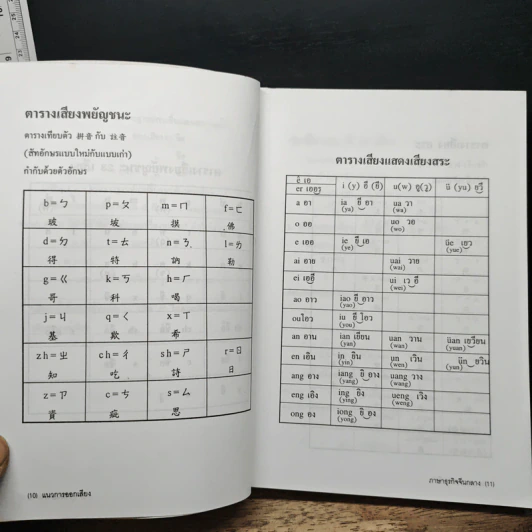 ตารางเสียงพยัญชนะ
ตารางเทียบตัว 拼音 กับ 註音
(สัทอักษรแบบใหม่กับแบบเก่า)
กำกับด้วยตัวอักษร
b = ㄅ p = ㄆ m = ㄇ f = ㄈ
玻 坡 摸 佛
d = ㄉ t = ㄊ n = ㄋ l = ㄌ
得 特 訥 勒
g = ㄍ k = ㄎ h = ㄏ
哥 科 喝
j = ㄐ q = ㄑ x = ㄒ
基 欺 希
zh = ㄓ ch = ㄔ sh = ㄕ r = ㄖ
知 吃 詩 日
z = ㄗ c = ㄘ s = ㄙ
資 疵 思
(10) แนวการออกเสียง
ตารางเสียงแสดงเสียงสระ
er เออร
i (y) อี (ยี) u(w) อู(วู) ü (yu) ยวี
a อา ia ยี อา ua วา
(ya) (wa)
o ออ uo วอ
(wo)
e เออ ie ยี เอ üe เยว
(ye) (yue)
ai อาย uai วาย
(wai)
ei เอยี ui เว ยี
(wei)
ao อาว iao ยี อาว
(yao)
ou โอว iu ยี โอว
(you)
an อาน ian เยียน uan วาน üan เยวียน
(yan) (wan) (yuan)
en เอิน in ยิน un เวิน ün ยวิน
(yin) (wen) (yun)
ang อาง iang ยี อาง uang วาง
(yang) (wang)
eng เอิง ing ยิง ueng เวิง
(ying) (weng)
ong อง iong ยี อง
(yong)
ภาษาธุรกิจจีนกลาง (11)